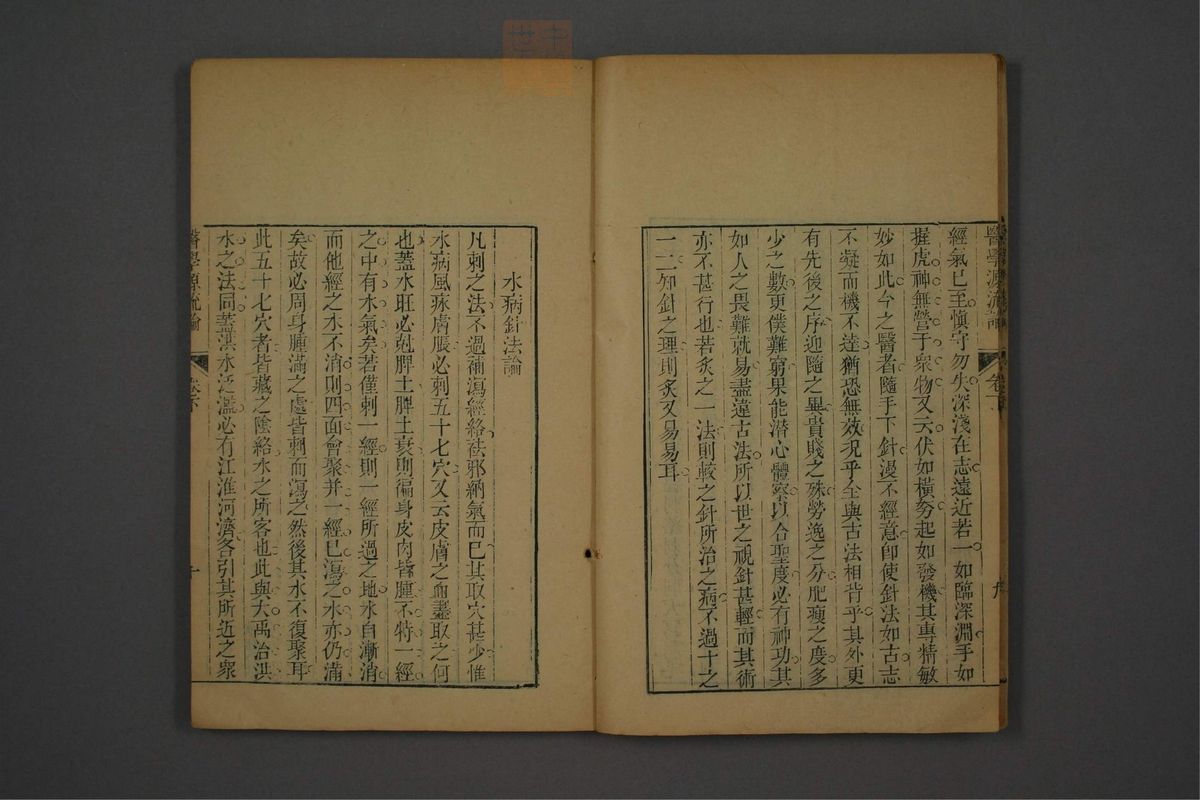 醫學源流論
卷下
九
經氣已至慎守勿失深淺在志遠近若一如臨深淵手如
握虎神無營于衆物又云伏如橫弩起如發機其專精敏
妙如此今之醫者隨手下針漫不經意卽使針法如古志
不凝而機不達猶恐無效况乎全與古法相背乎其外更
有先後之序迎隨之異貴賤之殊勞逸之分肥瘦之度多
少之數更僕難窮果能潛心體察以合聖度必有神功其
如人之畏難就易盡違古法所以世之視針甚輕而其術
亦不甚行也若炙之一法則較之針所治之病不過十之
一二知針之理則炙又易易耳
水病針法論
凡刺之法不過補瀉經絡祛邪納氣而已其取穴甚少惟
水病風㽷膚脹必刺五十七穴又云皮膚之血盡取之何
也蓋水旺必尅脾土脾土衰則徧身皮肉皆腫不特一經
之中有水氣矣若僅刺一經則一經所過之地水自漸消
而他經之水不消則四面會聚并一經已瀉之水亦仍滿
矣故必周身腫滿之處皆刺而瀉之然後其水不復聚耳
此五十七穴者皆藏之陰絡水之所客也此與大禹治洪
水之法同蓋洪水泛濫必有江淮河濟各引其所近之衆
醫學源流論
卷下
十